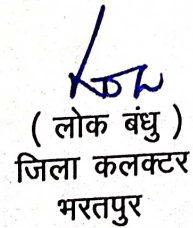 ( लोक बंधु )
जिला कलक्टर
भरतपुर